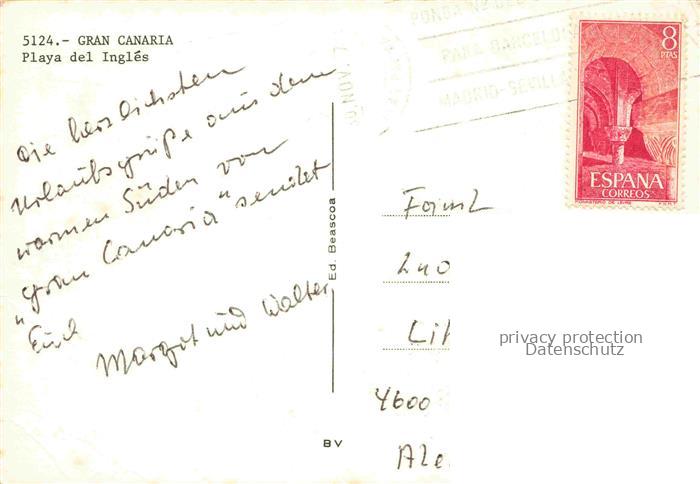 5124.- GRAN CANARIA
Playa del Inglés
Die herzlichsten
Urlaubsgrüße aus dem
warmen Süden von
"Gran Canaria" sendet
Euch
Margot und Walter
Ed. Beascoa
BV
NOV. 7
PONGA
PARA BARCELONA
MADRID-SEVILLA
8
PTAS
ESPAÑA
CORREOS
MONASTERIO DE LEYRE
Faml
Lil
privacy protection
Datenschutz
4600